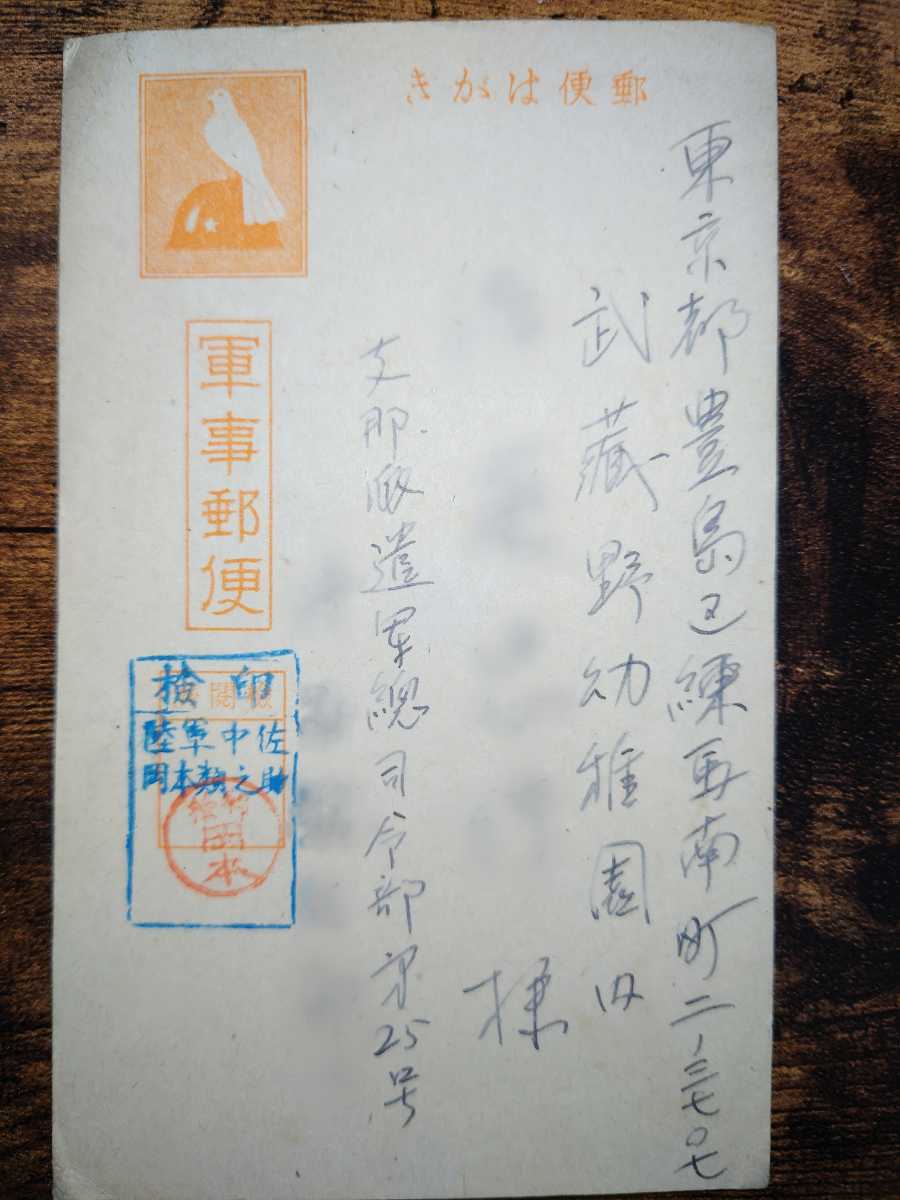 きがは便郵
東京都豊島区練馬南町二ノ三七〇七
武蔵野幼稚園内
様
支那派遣軍總司令部第25号
軍事郵便
検印
陸軍中佐
岡本類之助
岡本